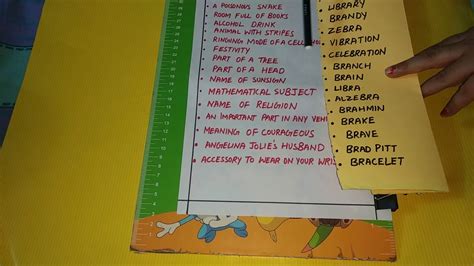 A POISONOUS SNAKE
ROOM FULL OF BOOKS
ALCOHOL DRINK
ANIMAL WITH STRIPES
RINGING MODE OF A CELL
FESTIVITY
PART OF A TREE
PART OF A HEAD
NAME OF SUNSIGN
MATHEMATICAL SUBJECT
NAME OF RELIGION
AN IMPORTANT PART IN ANY VEHI
MEANING OF COURAGEOUS
ANGELINA JOLIE'S HUSBAND
ACCESSORY TO WEAR ON YOUR WRIS
LIBRARY
BRANDY
ZEBRA
VIBRATION
CELEBRATION
BRANCH
BRAIN
LIBRA
ALZEBRA
BRAHMIN
BRAKE
BRAVE
BRAD PITT
BRACELET